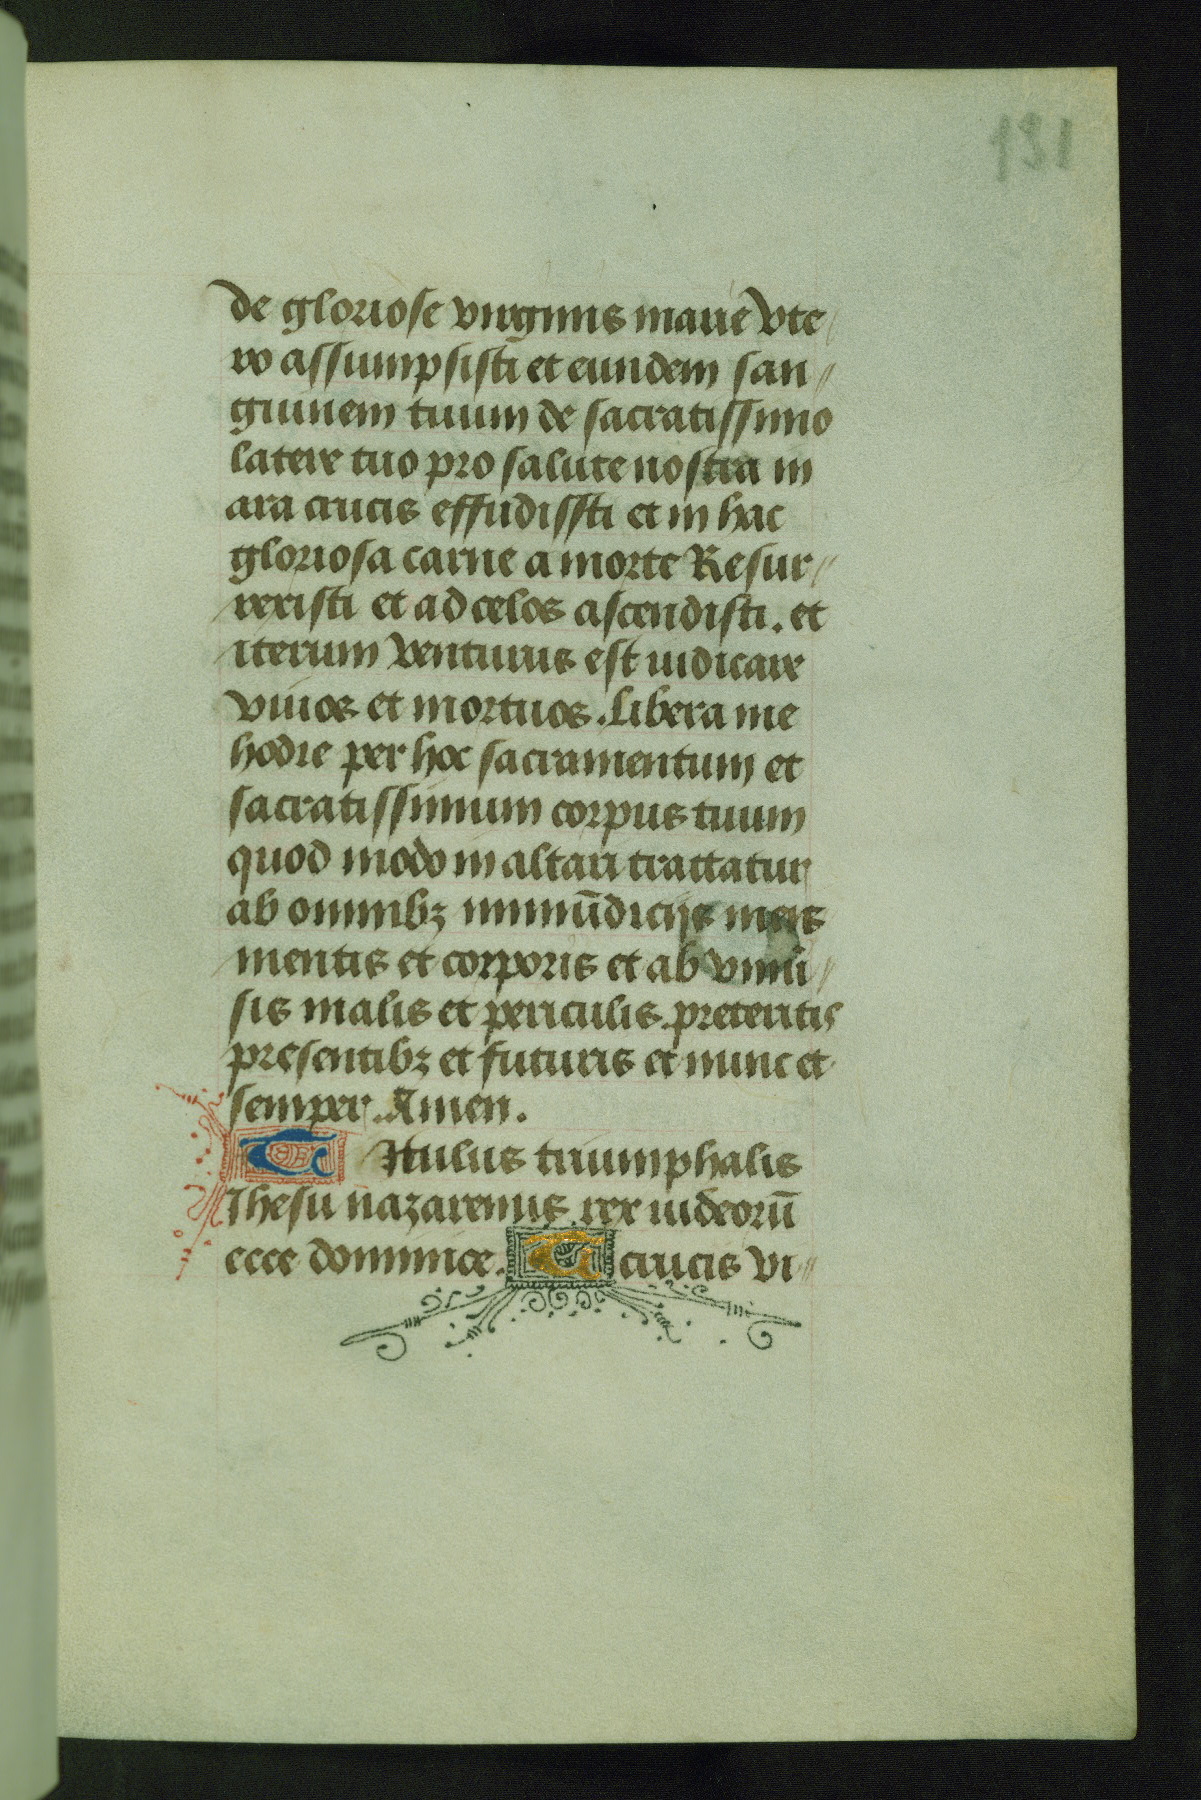 131
de gloriose virginis marie vte
ro assumpsisti et eundem san
guinem tuum de sacratissimo
latere tuo pro salute nostra in
ara crucis effudissti et in hac
gloriosa carne a morte Resur
rexisti et ad celos ascendisti. et
iterum venturus est iudicare
viuos et mortuos. Libera me
hodie per hoc sacramentum et
sacratissimum corpus tuum
quod modo in altari trattatur
ab omnibz immūdicijs meis
mentis et corporis et ab vniu̅
sis malis et periculis. preteritis
presentibz et futuris et nunc et
semper. Amen.
Titulus triumphalis
Ihesu nazarenus rex iudeorū
ecce dominice. T crucis vi